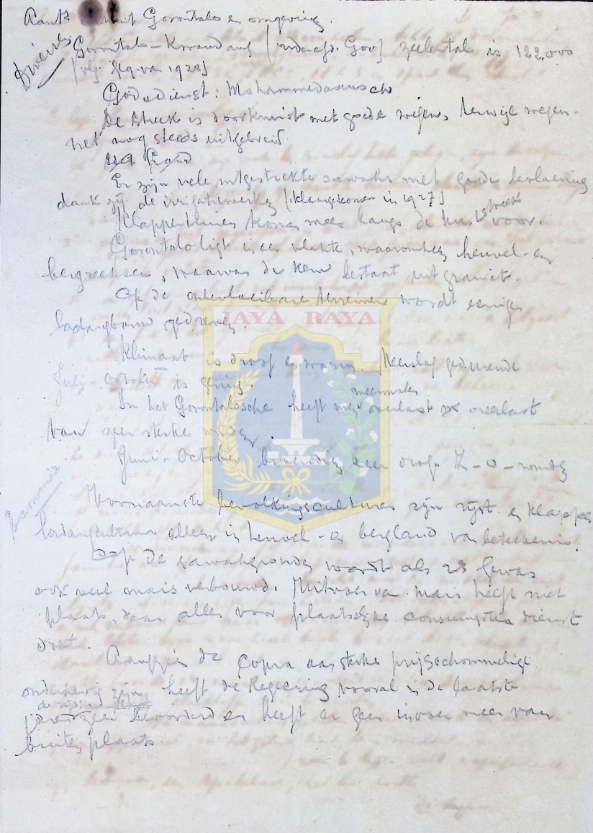 Gorontalo en omgeving.
Diversen
Gorontalo - Kwandang [onderafd. Gor] zielental is 122.000
Godsdienst: Mohammedaansch
De streek is doorkruist met goede wegen, terwijl wegen-
net nog steeds uitgebreid.
Er zijn vele uitgestrekte sawahs met goede bevloeiing
dank zij de irrigatiewerken [ in 1927]
Klappertuinen komen meer langs de kuststreek voor.
Gorontalo ligt in een vlakte, waaromheen heuvel- en
bergreeksen, waarvan de kern bestaat uit graniet.
Op de terreinen wordt eenige
ladangbouw gedreven.
JAYA RAYA
Klimaat is droog en warm. Neerslag gedurende
Juli - October is gering
In het Gorontalosche heeft men overlast
van zeer sterke
Juni - October een droge Z-O-
Voornaamste bevolkingscultures zijn rijst en klapper
ladangcultuur alleen in heuvel- en bergland van beteekenis.
Op de sawahgronden wordt als 2e gewas
ook veel mais verbouwd. Uitvoer van mais heeft niet
plaats, daar alles voor plaatselijke consumptie dienst
doet.
Aangezien de copra aan sterke prijsschommeling
onderhevig zijn heeft de Regeering vooral in de laatste
bevorderd en heeft er geen invoer meer van
buiten plaats